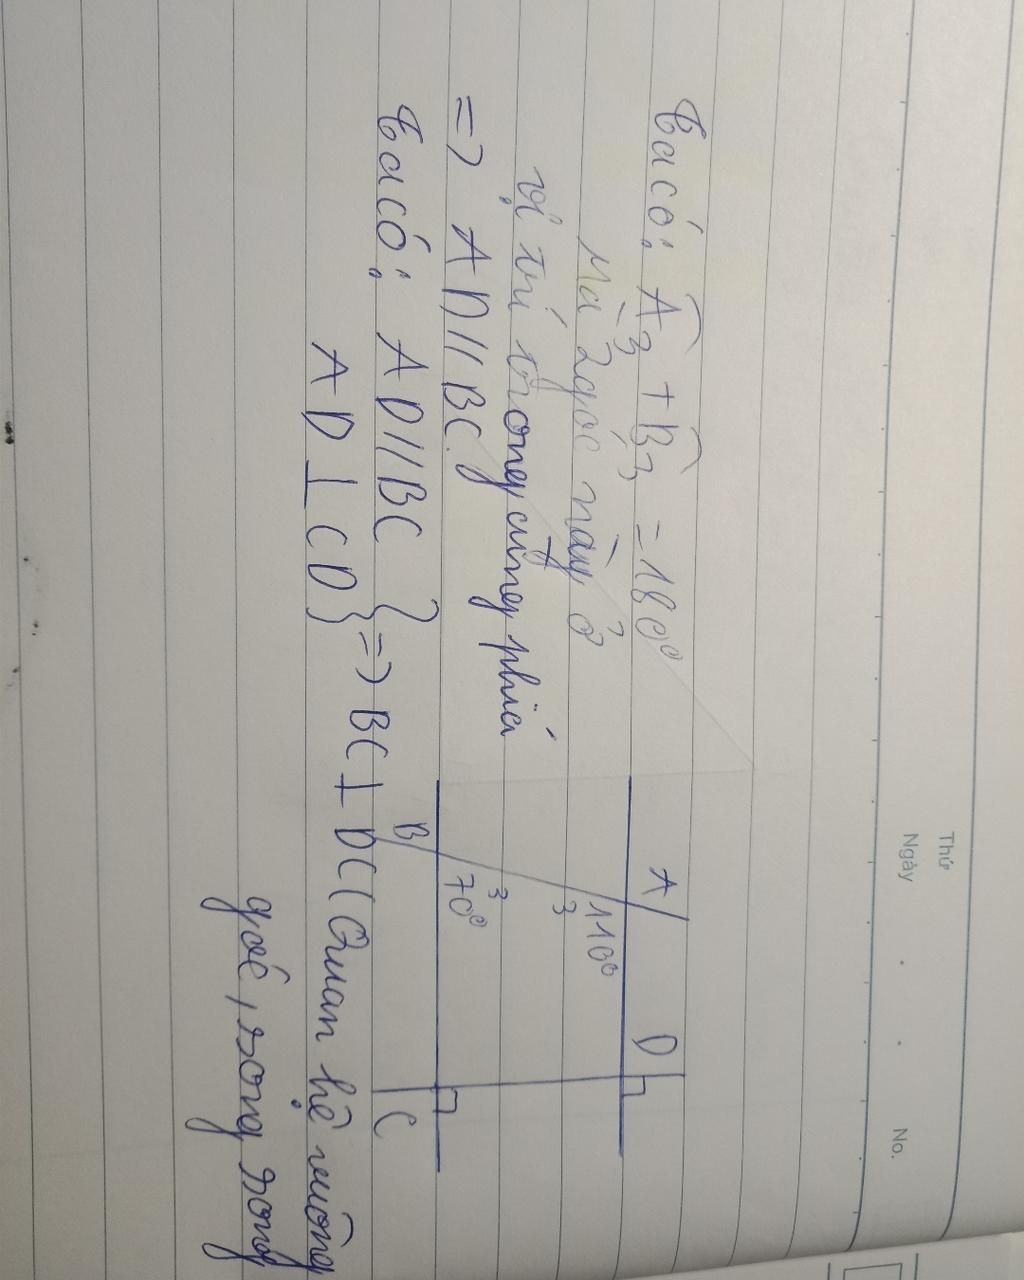 Thứ
Ngày
No.
Ta có: A3 + B3 = 180°
Mà 2 góc này ở
vị trí trong cùng phía
=> AD // BC
Ta có: AD // BC
AD ⊥ CD
} => BC ⊥ DC (Quan hệ vuông
góc, song song
A
D
110°
3
3
70°
B
C